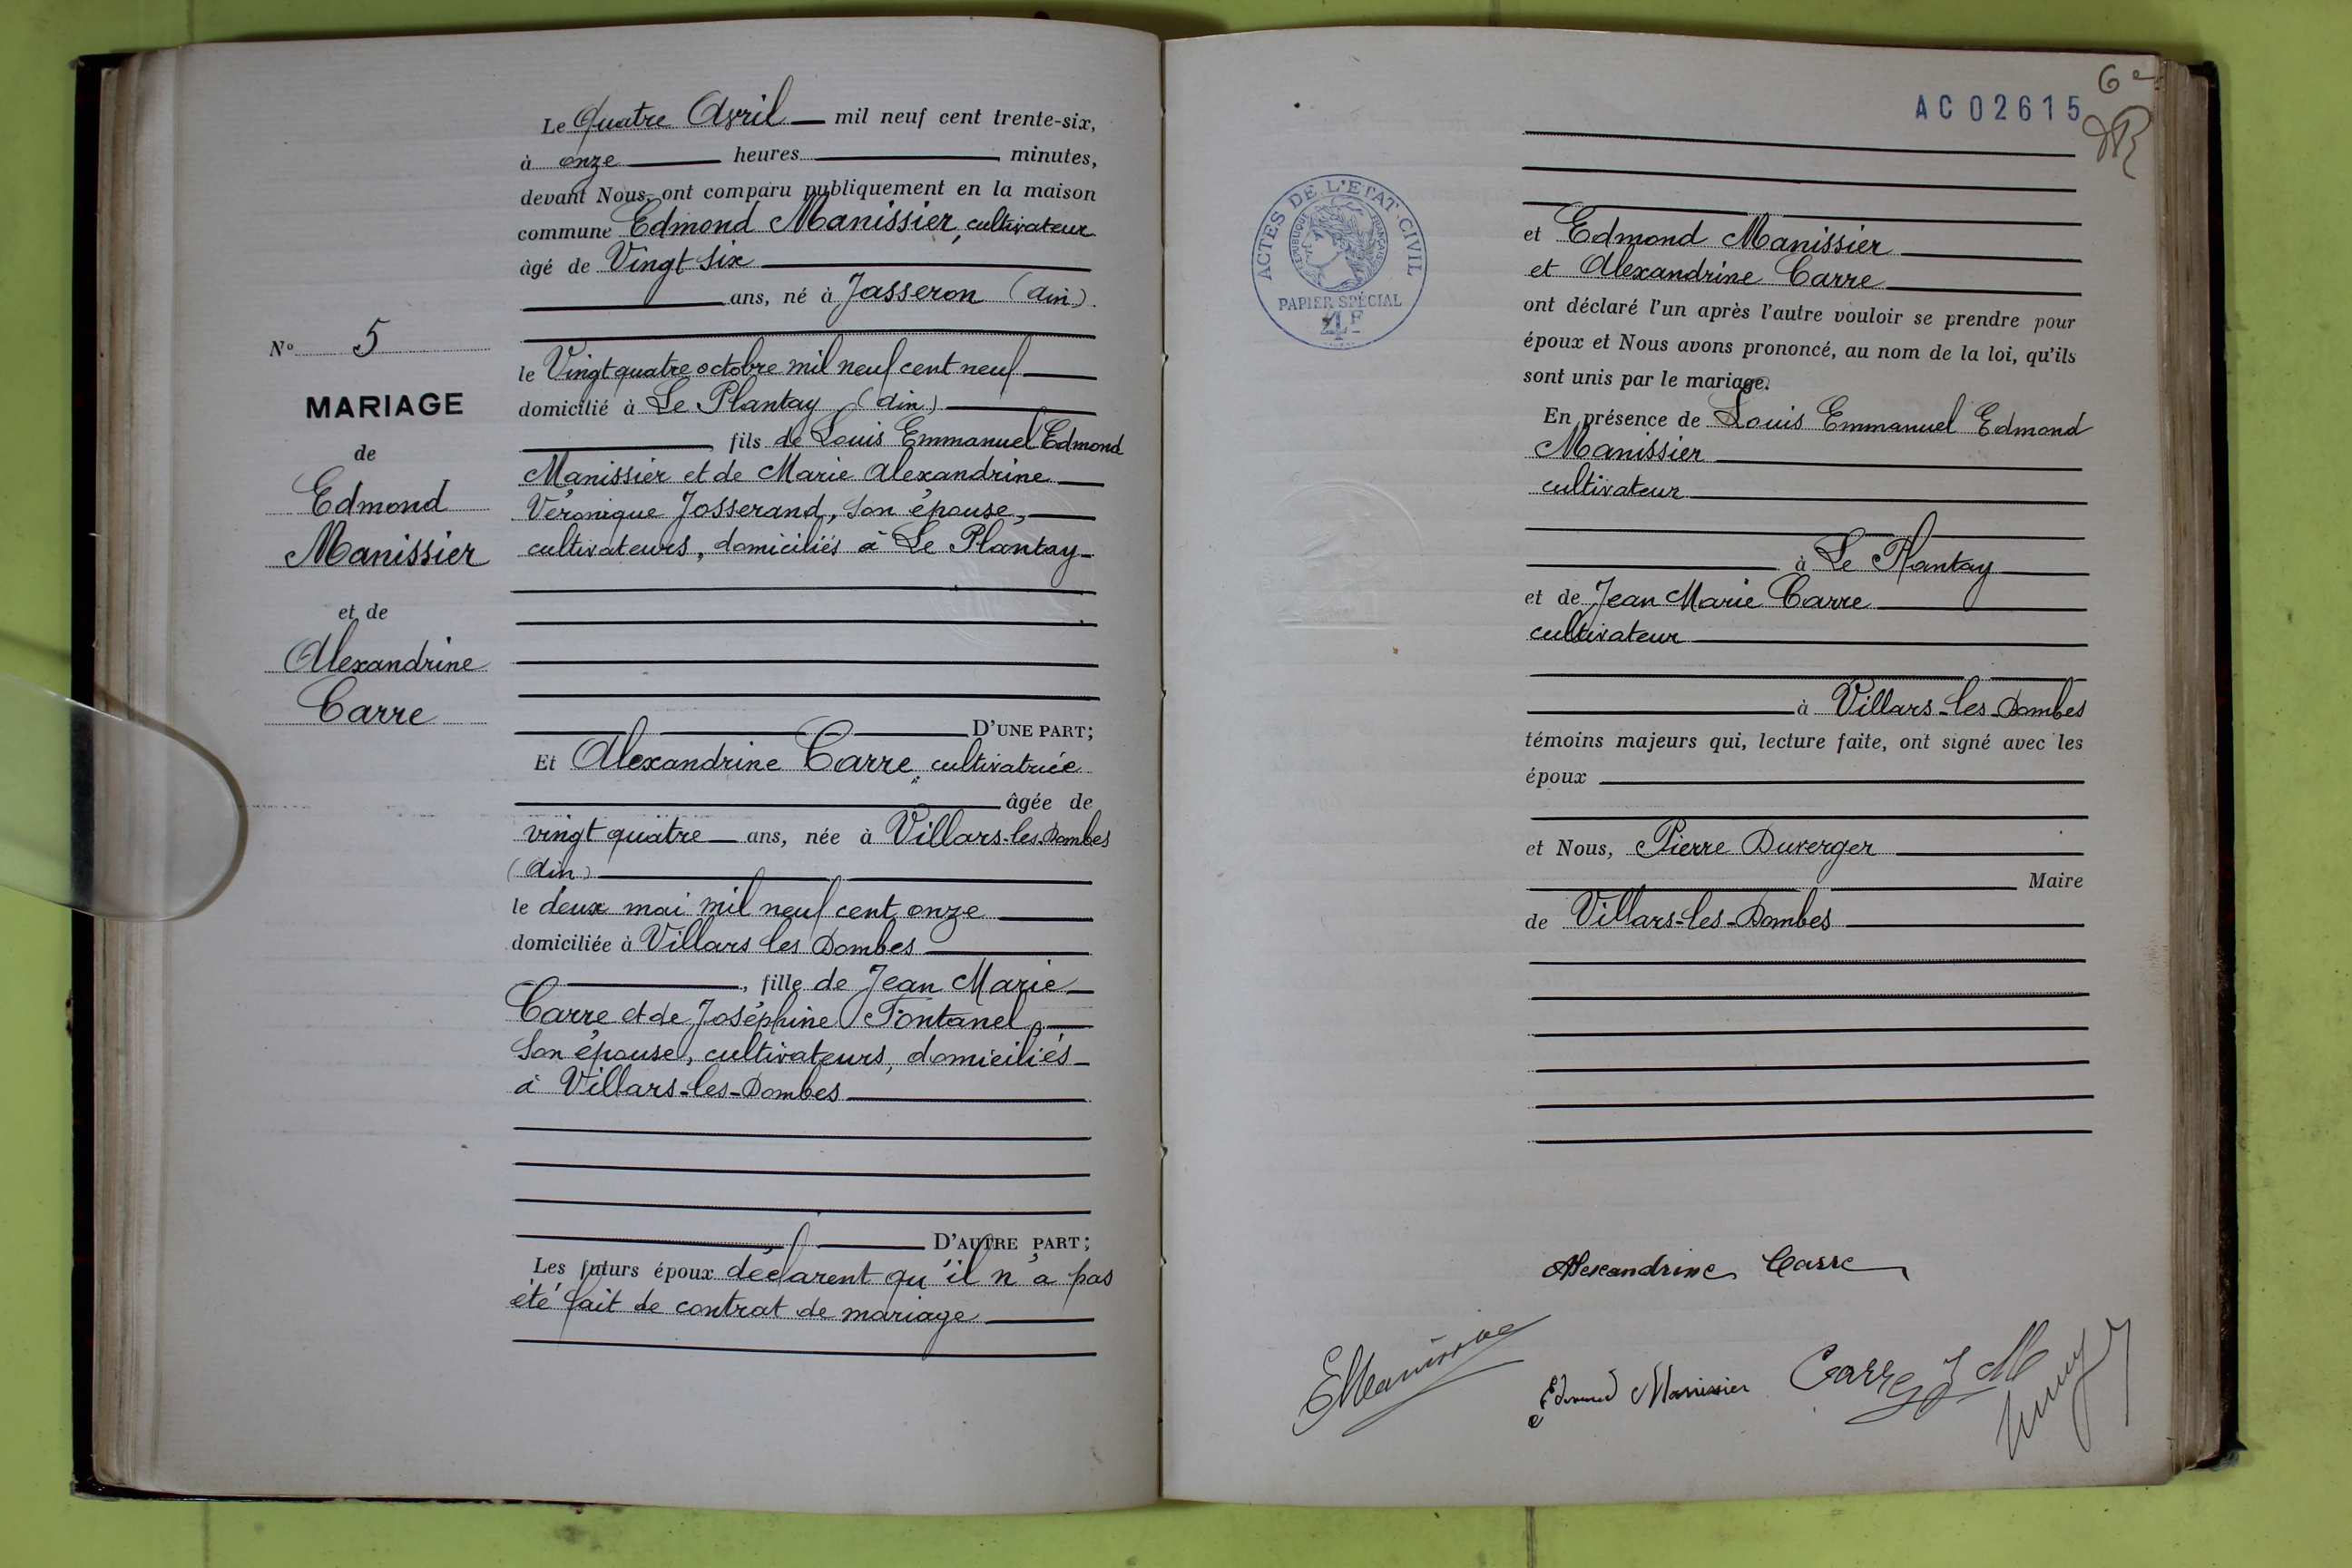 Le Quatre Avril mil neuf cent trente-six,
à onze heures minutes,
devant Nous, ont comparu publiquement en la maison
commune Edmond Manissier, cultivateur
âgé de Vingt six
ans, né à Jasseron (Ain).
le Vingt quatre octobre mil neuf cent neuf
domicilié à Le Plantay (Ain)
fils de Louis Emmanuel Edmond
Manissier et de Marie Alexandrine
Véronique Josserand, son épouse,
cultivateurs, domiciliés à Le Plantay
D'UNE PART;
Et Alexandrine Carre, cultivatrice
âgée de
vingt quatre ans, née à Villars-les-Dombes
(Ain)
le deux mai mil neuf cent onze
domiciliée à Villars les Dombes
, fille de Jean Marie
Carre et de Joséphine Fontanel,
son épouse, cultivateurs, domiciliés
à Villars-les-Dombes
D'AUTRE PART;
Les futurs époux déclarent qu'il n'a pas
été fait de contrat de mariage
No 5
MARIAGE
de
Edmond
Manissier
et de
Alexandrine
Carre
6e
AC 02615
ACTES DE L'ETAT-CIVIL
REPUBLIQUE FRANÇAISE
PAPIER SPÉCIAL
4F
et Edmond Manissier
et Alexandrine Carre
ont déclaré l'un après l'autre vouloir se prendre pour
époux et Nous avons prononcé, au nom de la loi, qu'ils
sont unis par le mariage.
En présence de Louis Emmanuel Edmond
Manissier
cultivateur
à Le Plantay
et de Jean Marie Carre
cultivateur
à Villars-les-Dombes
témoins majeurs qui, lecture faite, ont signé avec les
époux
et Nous, Pierre Duverger
Maire
de Villars-les-Dombes
Alexandrine Carre
EManissier
Edmond Manissier
Carre J M